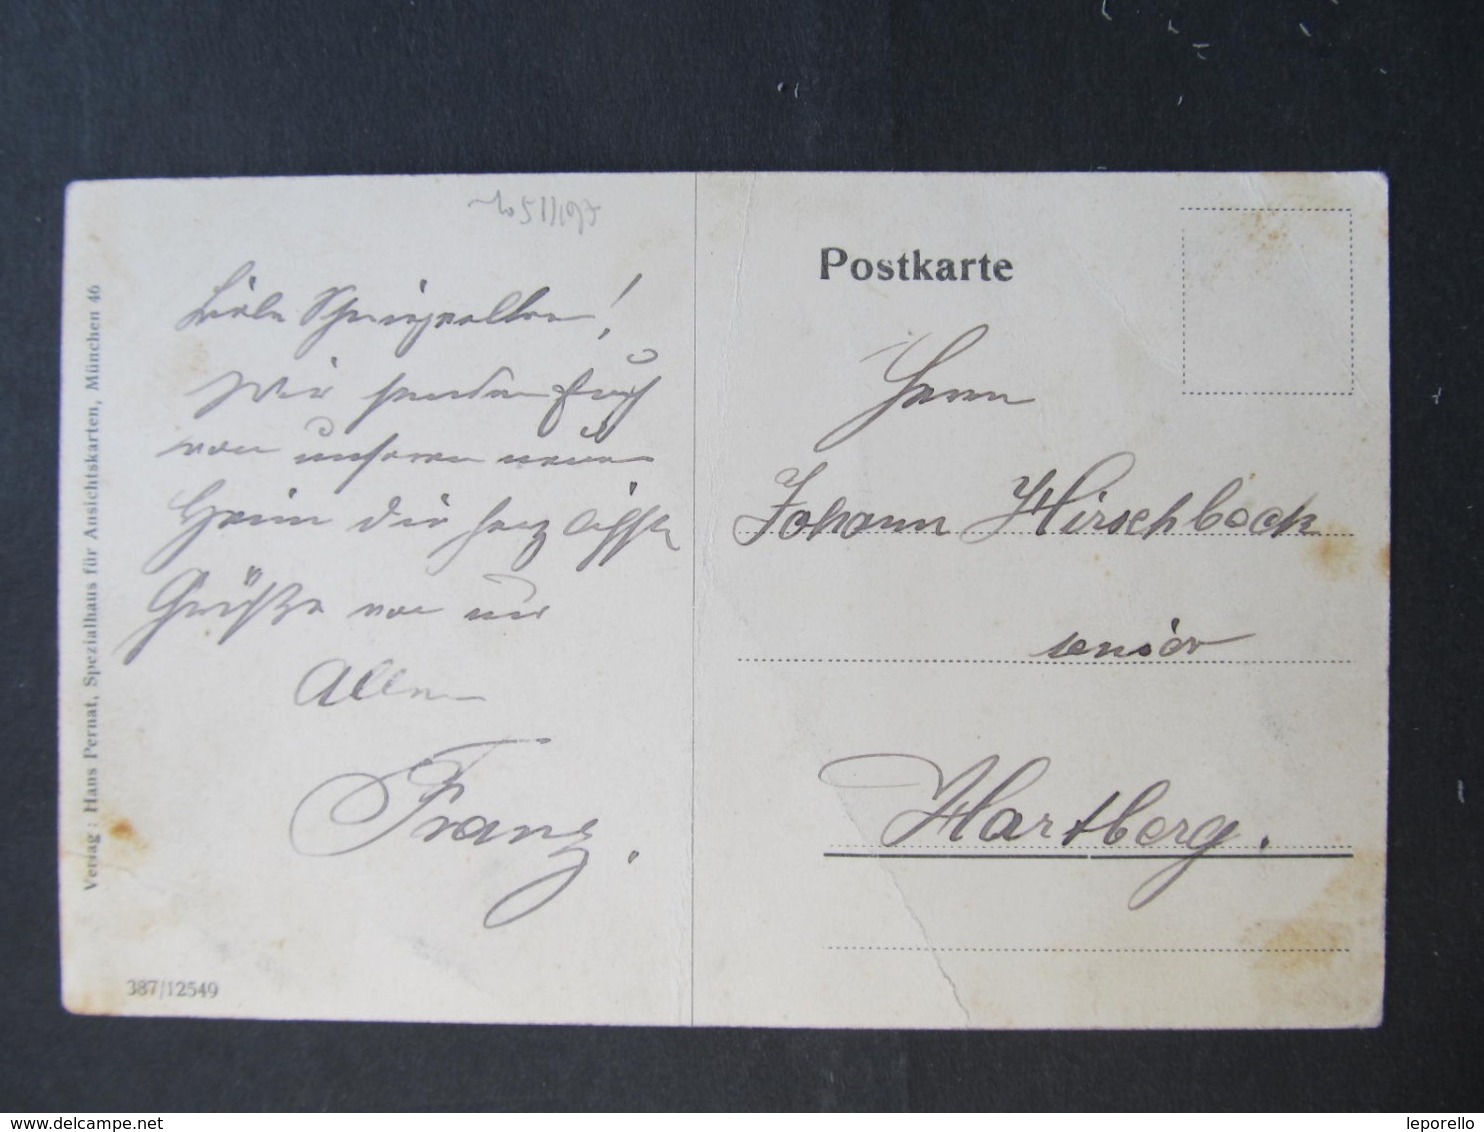 Liebe Schwiegereltern!
Wir senden Euch
von unserem neuen
Heim die herzlichsten
Grüße von uns
Allen
Franz.
Verlag: Hans Pernat, Spezialhaus für Ansichtskarten, München 46
387/12549
Postkarte
Herrn
Johann Hirschböck
senior
Hartberg.
leporello
delcampe.net